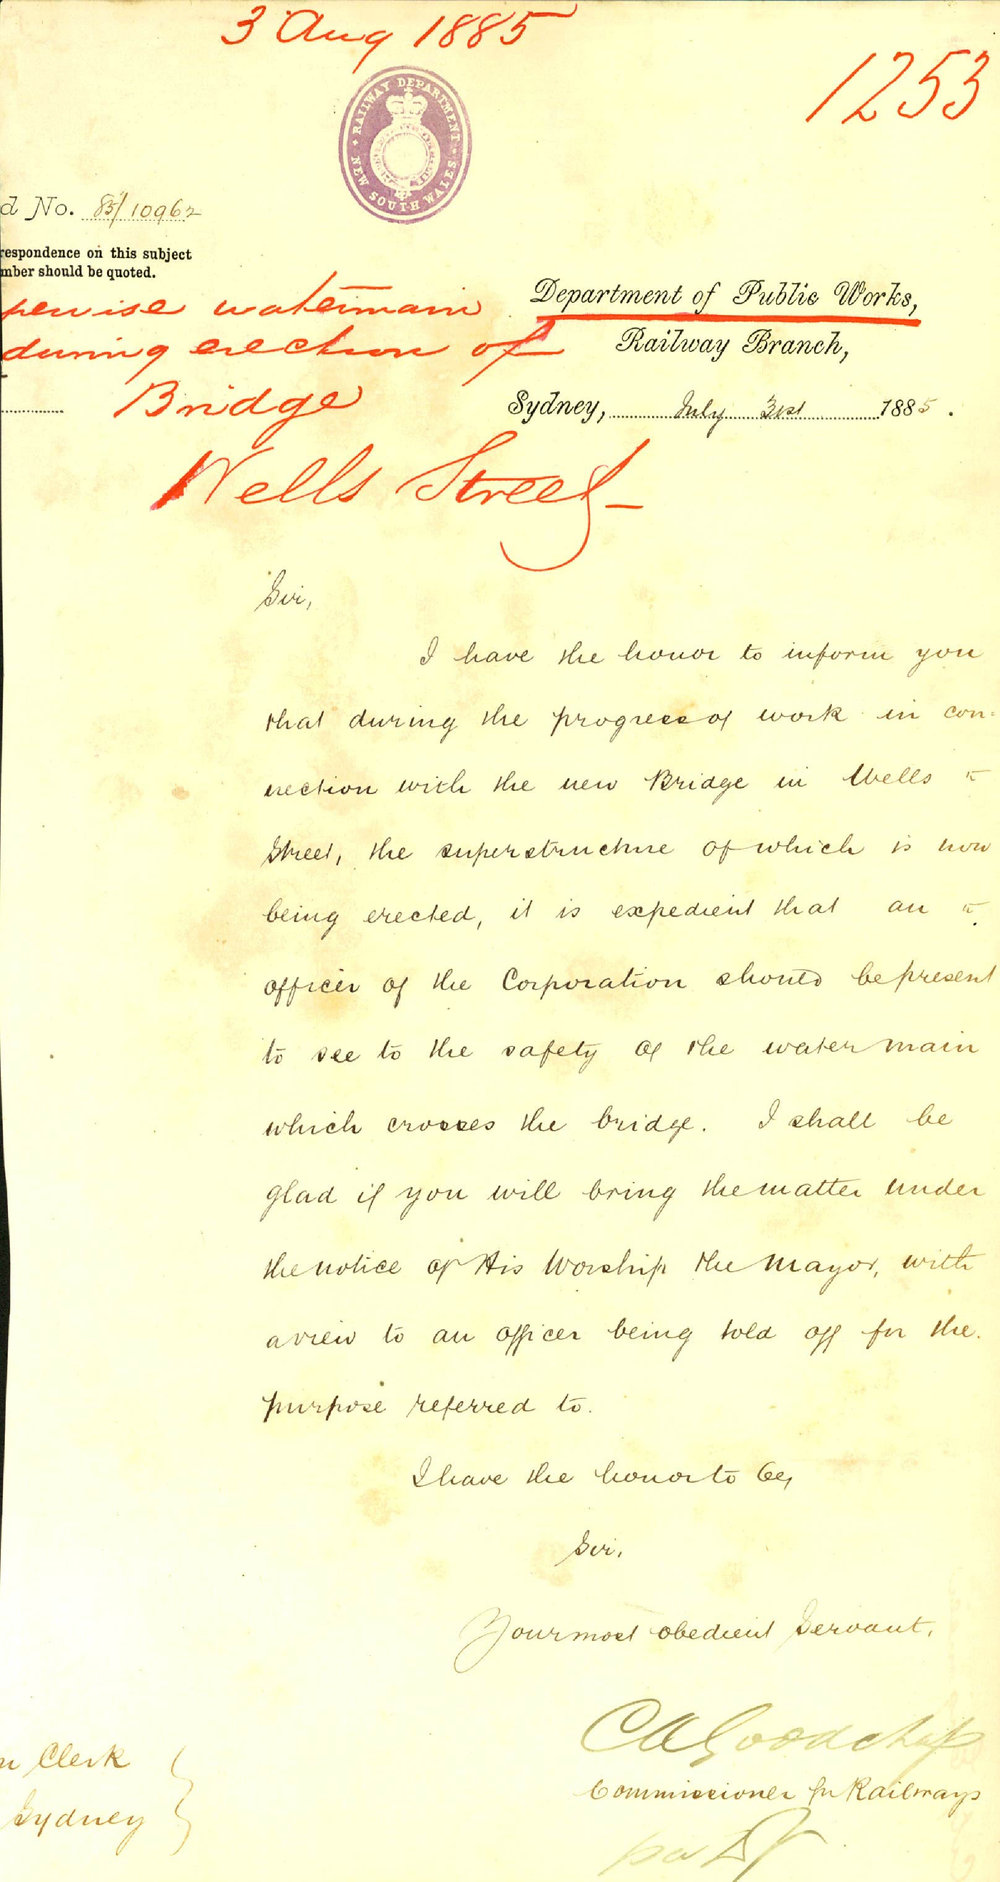 3 Aug 1885
1253
RAILWAY DEPARTMENT
NEW SOUTH WALES
d No. 85/10962
respondence on this subject
mber should be quoted.
pervise watermain
during erection of
Bridge
Wells Street
Department of Public Works,
Railway Branch,
Sydney, July 31st 1885.
Sir,
I have the honor to inform you
that during the progress of work in con-
nection with the new Bridge in Wells
Street, the superstructure of which is now
being erected, it is expedient that an
officer of the Corporation should be present
to see to the safety of the water main
which crosses the bridge. I shall be
glad if you will bring the matter under
the notice of His Worship the Mayor, with
a view to an officer being told off for the
purpose referred to.
I have the honor to be,
Sir,
Your most obedient Servant,
C A Goodchap
Commissioner for Railways
n Clerk
Sydney